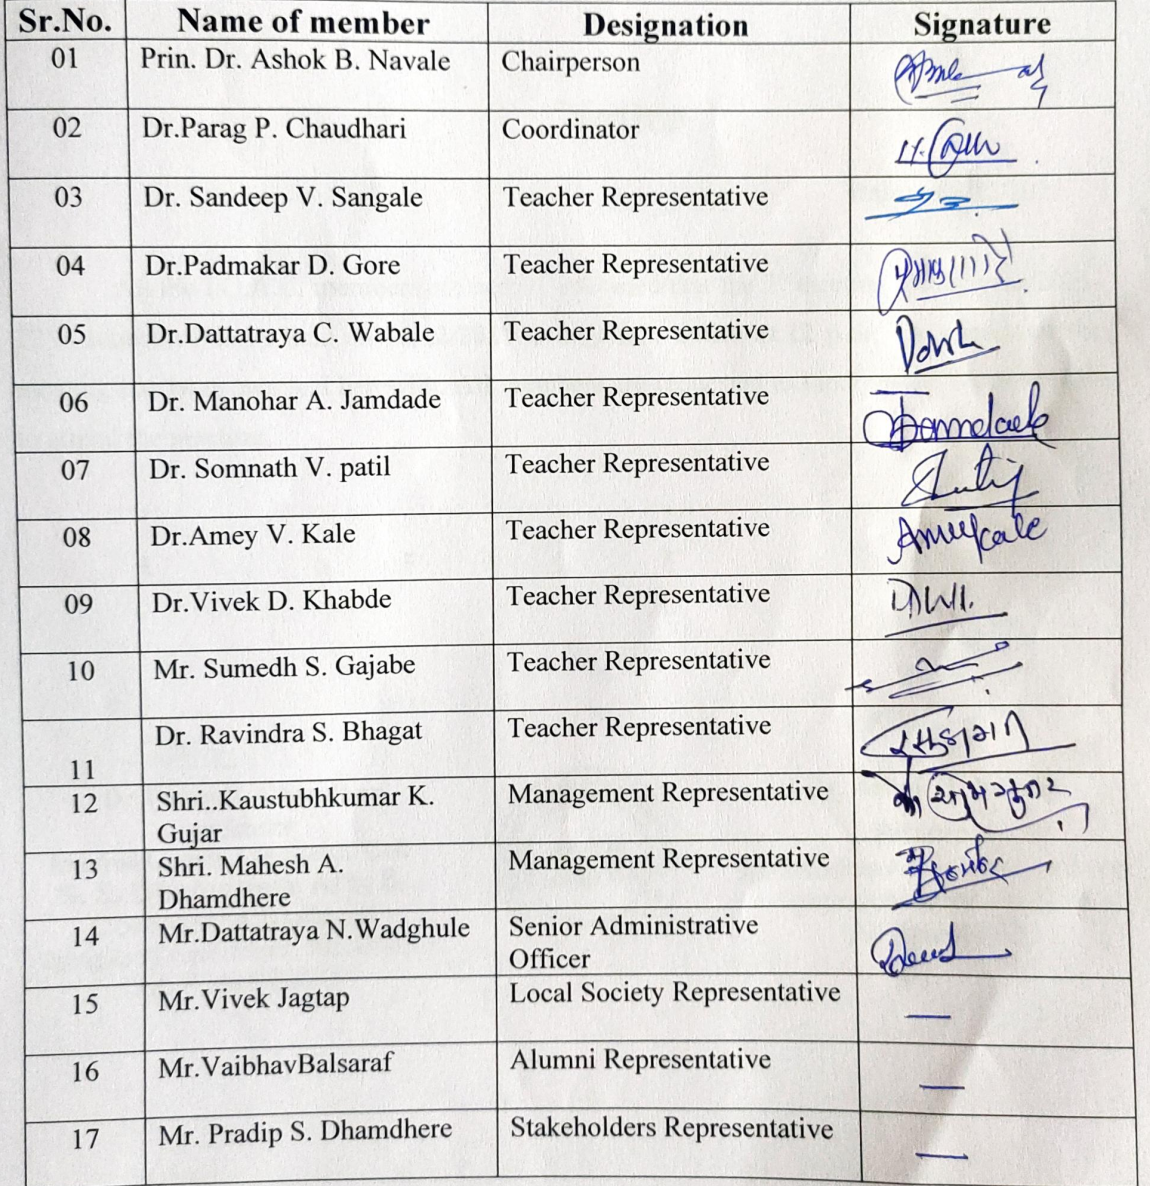 Sr.No. Name of member Designation Signature
01 Prin. Dr. Ashok B. Navale Chairperson
02 Dr.Parag P. Chaudhari Coordinator
03 Dr. Sandeep V. Sangale Teacher Representative
04 Dr.Padmakar D. Gore Teacher Representative
05 Dr.Dattatraya C. Wabale Teacher Representative
06 Dr. Manohar A. Jamdade Teacher Representative
07 Dr. Somnath V. patil Teacher Representative
08 Dr.Amey V. Kale Teacher Representative Ameykale
09 Dr.Vivek D. Khabde Teacher Representative
10 Mr. Sumedh S. Gajabe Teacher Representative
11 Dr. Ravindra S. Bhagat Teacher Representative
12 Shri..Kaustubhkumar K. Management Representative
Gujar
13 Shri. Mahesh A. Management Representative
Dhamdhere
14 Mr.Dattatraya N.Wadghule Senior Administrative
Officer
15 Mr.Vivek Jagtap Local Society Representative —
16 Mr.VaibhavBalsaraf Alumni Representative —
17 Mr. Pradip S. Dhamdhere Stakeholders Representative —